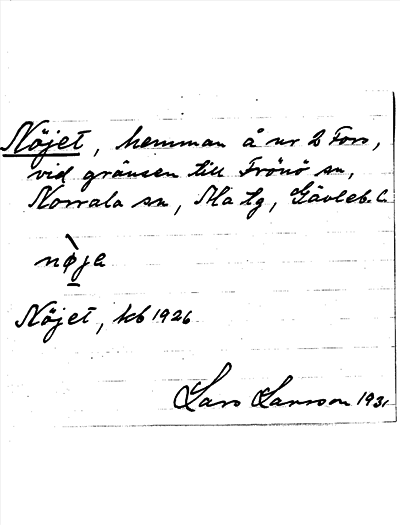 Nöjet, hemman å nr 2 Fors,
vid gränsen till Trönö sn,
Norrala sn, Ala tg, Gävleb. l.
nø̀ja
Nöjet, kb 1926
Lars Larsson 1931